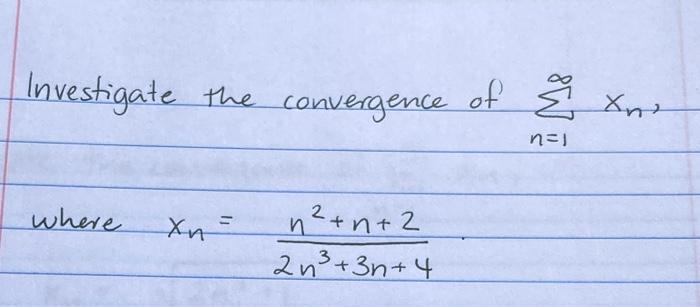 Investigate the convergence of ∑_{n=1}^{∞} xₙ,
where xₙ = (n² + n + 2) / (2n³ + 3n + 4).